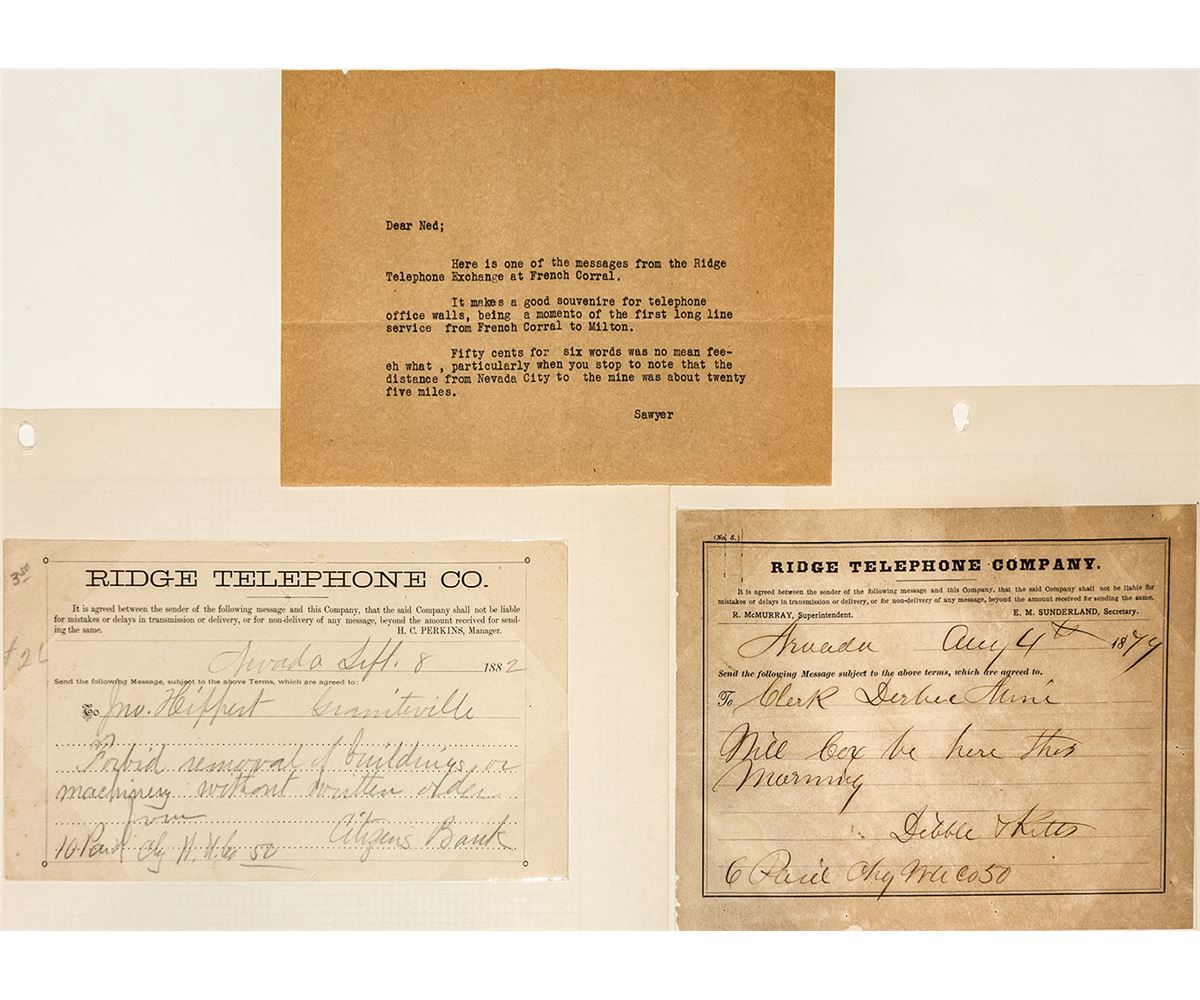 Dear Ned;
Here is one of the messages from the Ridge
Telephone Exchange at French Corral.
It makes a good souvenire for telephone
office walls, being a momento of the first long line
service from French Corral to Milton.
Fifty cents for six words was no mean fee-
eh what , particularly when you stop to note that the
distance from Nevada City to the mine was about twenty
five miles.
Sawyer
3.50
RIDGE TELEPHONE CO.
It is agreed between the sender of the following message and this Company, that the said Company shall not be liable
for mistakes or delays in transmission or delivery, or for non-delivery of any message, beyond the amount received for send-
ing the same. H. C. PERKINS, Manager.
Nevada Sept. 8 1882
Send the following Message, subject to the above Terms, which are agreed to:
To Jno. Hippert Graniteville
Forbid removal of buildings or
machinery without written order
from
Citizens Bank
10 Paid Chg 50
(No. 5.)
RIDGE TELEPHONE COMPANY.
It is agreed between the sender of the following message and this Company, that the said Company shall not be liable for
mistakes or delays in transmission or delivery, or for non-delivery of any message, beyond the amount received for sending the same.
R. McMURRAY, Superintendent. E. M. SUNDERLAND, Secretary.
Nevada Aug 4th 1879
Send the following Message subject to the above terms, which are agreed to.
To Clerk Derbec Mine
Will Cox be here this
Morning
Dibble & Kitts
6 Paid Chg Co 50